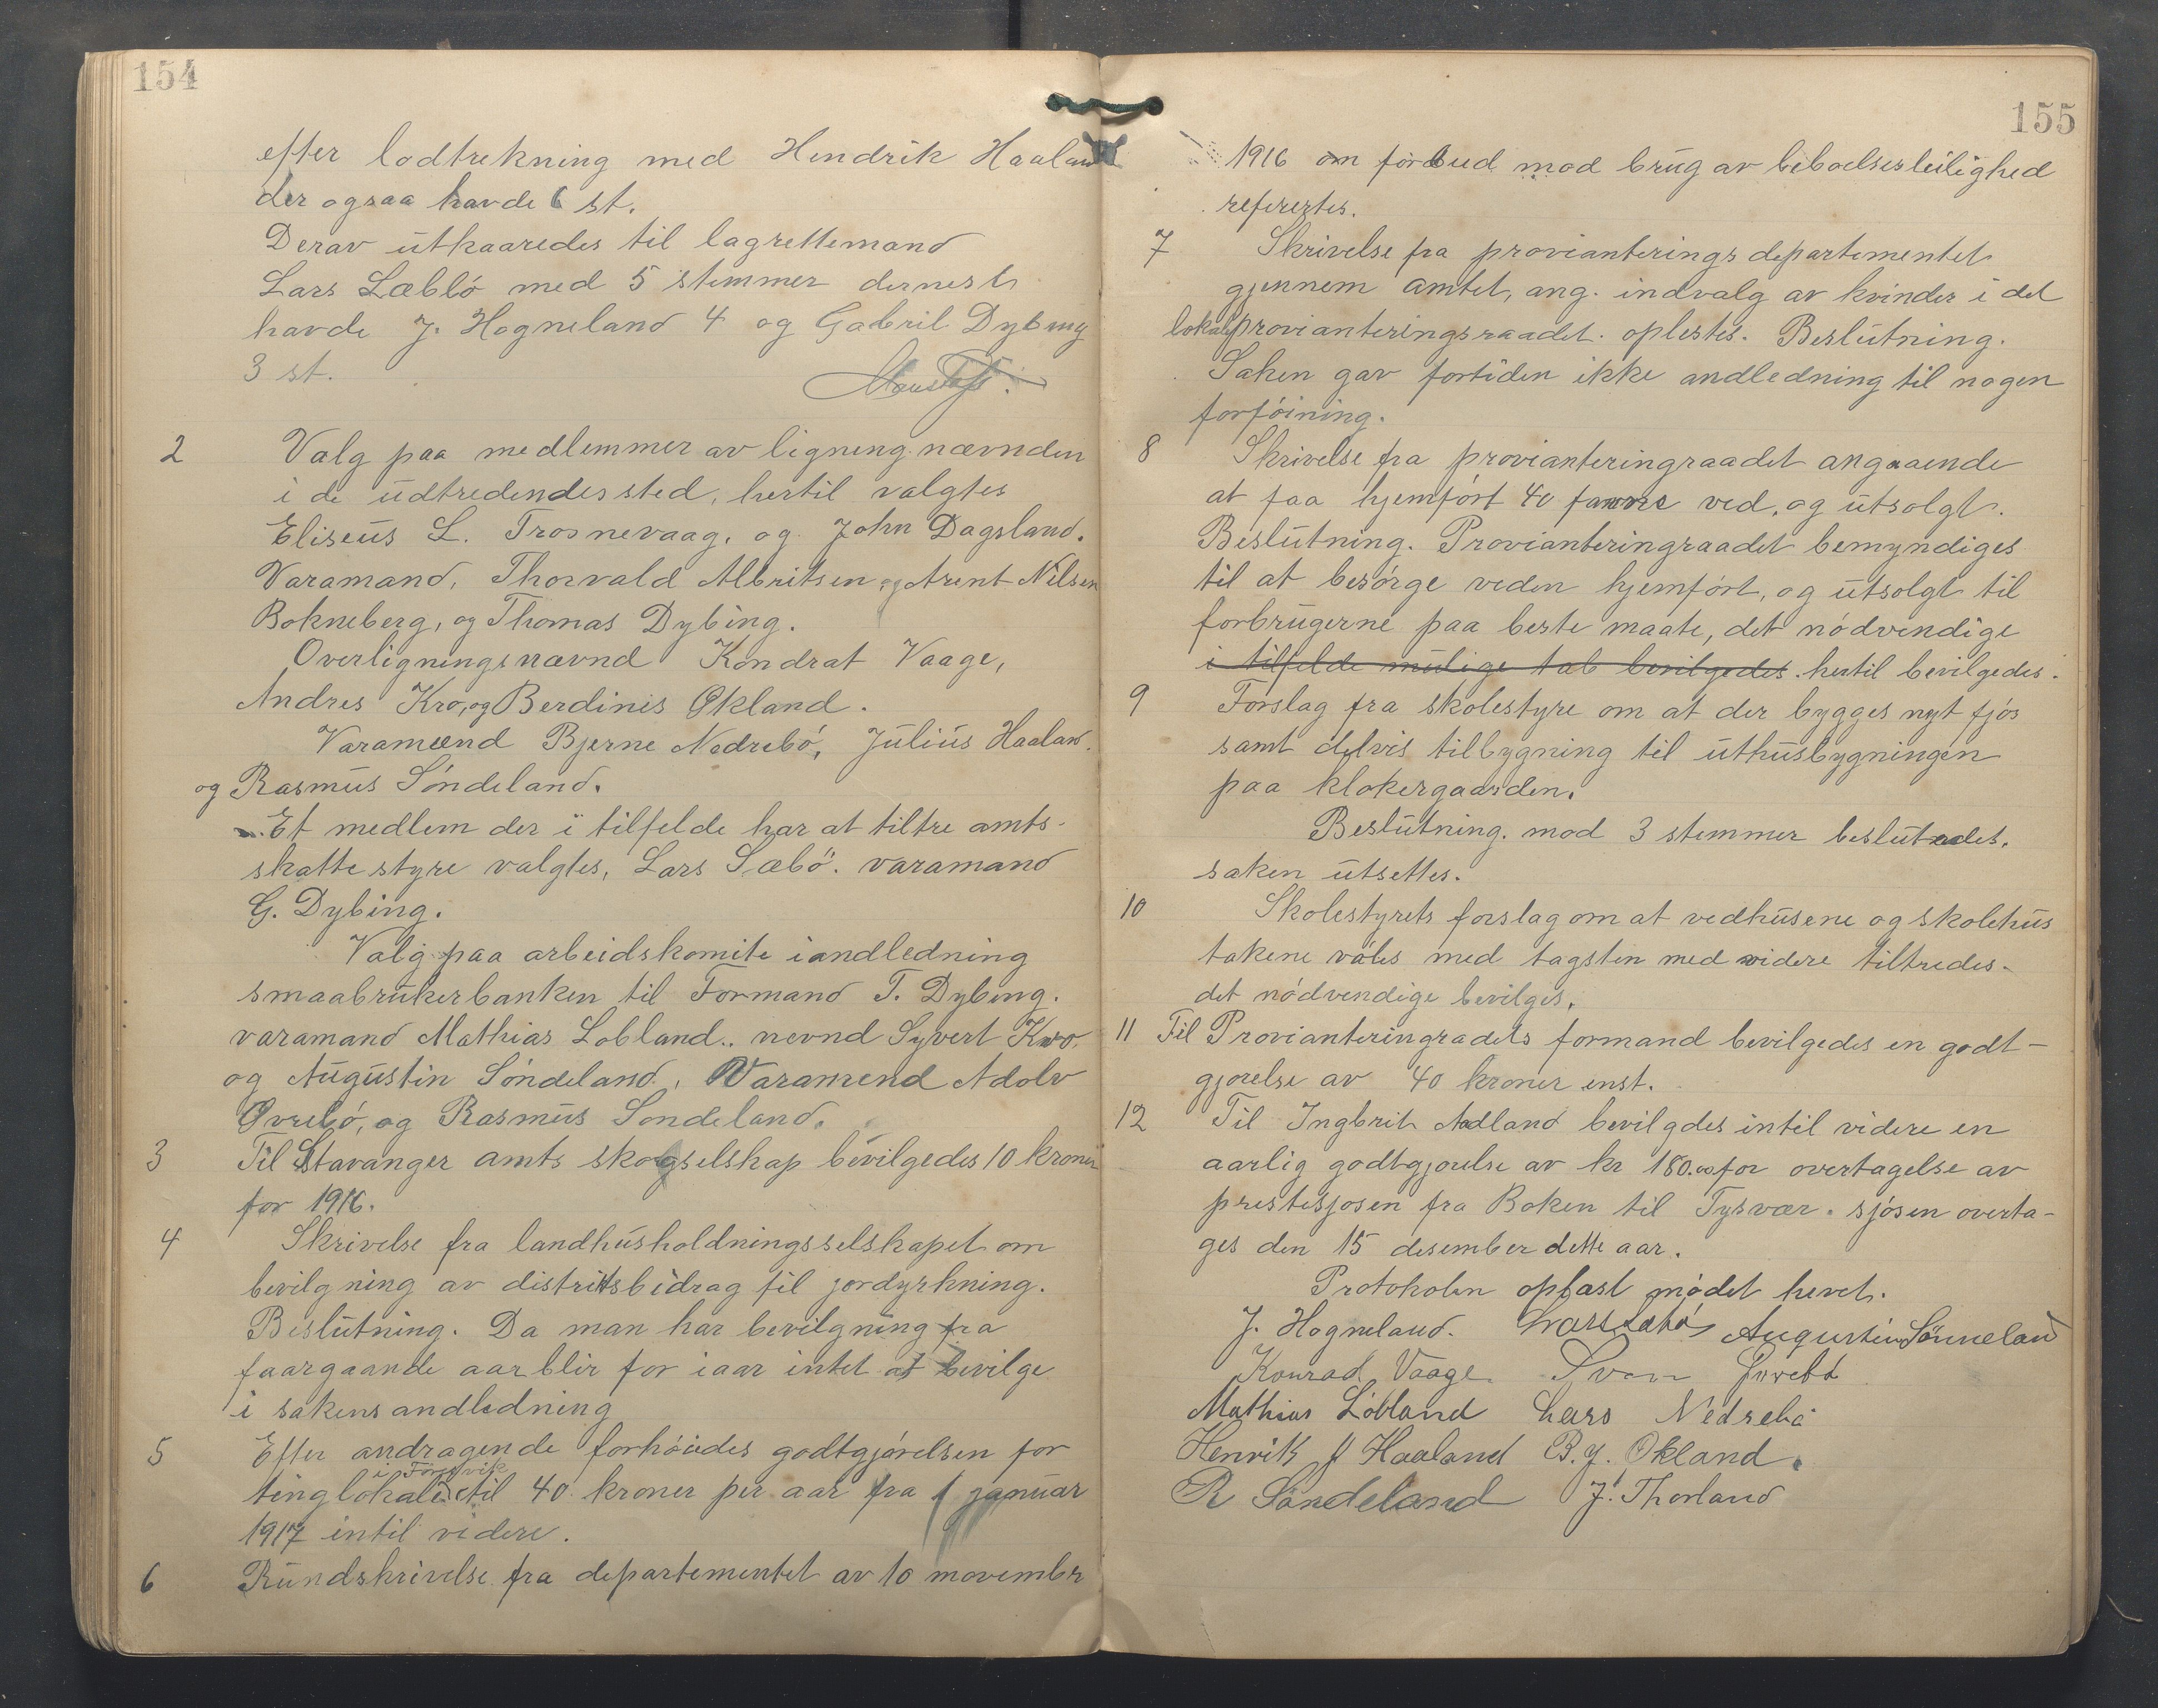 154
efter lodtrekning med Hendrik Haaland
der ogsaa havde 6 st.
Derav utkaaredes til lagrettemand
Lars Læblø med 5 stemmer dernest
havde J. Hogneland 4 og Gabril Dybing
3 st.
2 Valg paa medlemmer av ligning nævnden
i de udtredendes sted, hertil valgtes
Eliseus L. Trosnevaag, og John Dagsland.
Varamand, Thorvald Albritsen og Arent Nilsen
Bokneberg, og Thomas Dybing.
Overligningsnævnd Kondrat Vaage,
Andres Krø, og Berdinis Økland.
Varamænd Bjerne Nedrebö, Julius Haaland.
og Rasmus Söndeland.
Et medlem der i tilfelde har at tiltre amts-
skatte styre valgtes, Lars Sæbö. varamand
G. Dybing.
Valg paa arbeidskomite i andledning
smaabrukerbanken til Formand T. Dybing.
varamand Mathias Lobland.. nevnd Syvert Kro,
og Augustin Söndeland, Varamend Adolv
Øvrebö, og Rasmus Sondeland.
3 Til Stavanger amts skogselskap bevilgedes 10 kroner
for 1916.
4 Skrivelse fra landhusholdningsselskapet om
bevilgning av distriktsbidrag til jordyrkning.
Beslutning. Da man har bevilgning fra
faargaande aar blir for iaar intet at bevilge
i sakens andledning
5 Efter andragende forhöiedes godtgjörelsen for
tinglokale i Førresvik til 40 kroner per aar fra 1 januar
1917 intil videre.
6 Rundskrivelse fra departementet av 10 movember
155
1916 om forbud mod brug av beboelsesleilighed
referertes.
7 Skrivelse fra provianterings departementet
gjennem amtet, ang. indvalg av kvinder i det
lokale provianteringsraadet. oplestes. Beslutning.
Saken gav fortiden ikke andledning til nogen
forföining.
8 Skrivelse fra provianteringraadet angaaende
at faa hjemfört 40 favne ved, og utsolgt.
Beslutning. Provianteringraadet bemyndiges
til at besörge veden hjemfört, og utsolgt til
forbrugerne paa beste maate, det nödvendige
i tilfelde mulige tab bevilgedes. hertil bevilgedes.
9 Forslag fra skolestyre om at der bygges nyt fjös
samt delvis tilbygning til uthusbygningen
paa klokergaarden.
Beslutning. mod 3 stemmer beslutedes,
saken utsettes.
10 Skolestyrets forslag om at vedhusene og skolehus
takene völes med tagsten med videre tiltredes.
det nödvendige bevilges.
11 Til Provianteringradets formand bevilgedes en godt-
gjorelse av 40 kroner enst.
12 Til Ingbrit Aadland bevilgdes intil videre en
aarlig godtgjorelse av kr 180.00 for overtagelse av
prestesjosen fra Boken til Tysvær. sjösen overta-
ges den 15 desember dette aar.
Protokolen oplast mödet hevet.
J. Hogneland. Lars Sæbö Augustin Sönneland
Konrad Vaage. Sven Øvrebö
Mathias Löbland Lars Nedrebö
Henrik J Haaland B. J. Økland.
R Söndeland J. Thorland